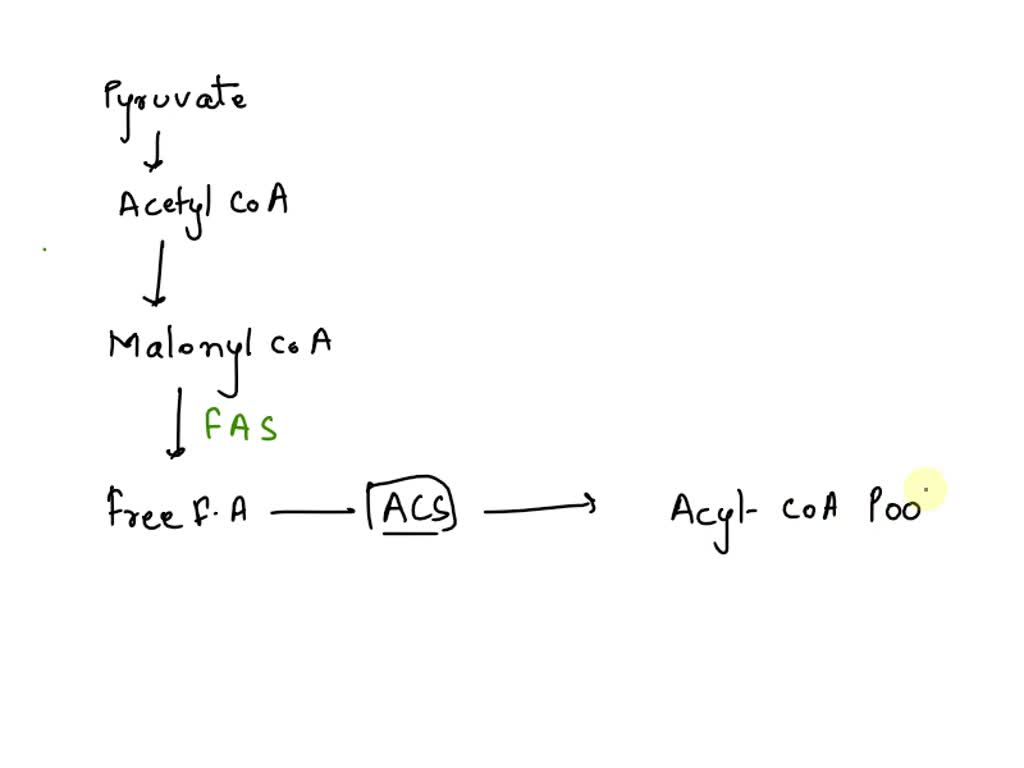 Pyruvate
Acetyl CoA
Malonyl CoA
FAS
Free F.A ACS Acyl- CoA Poo